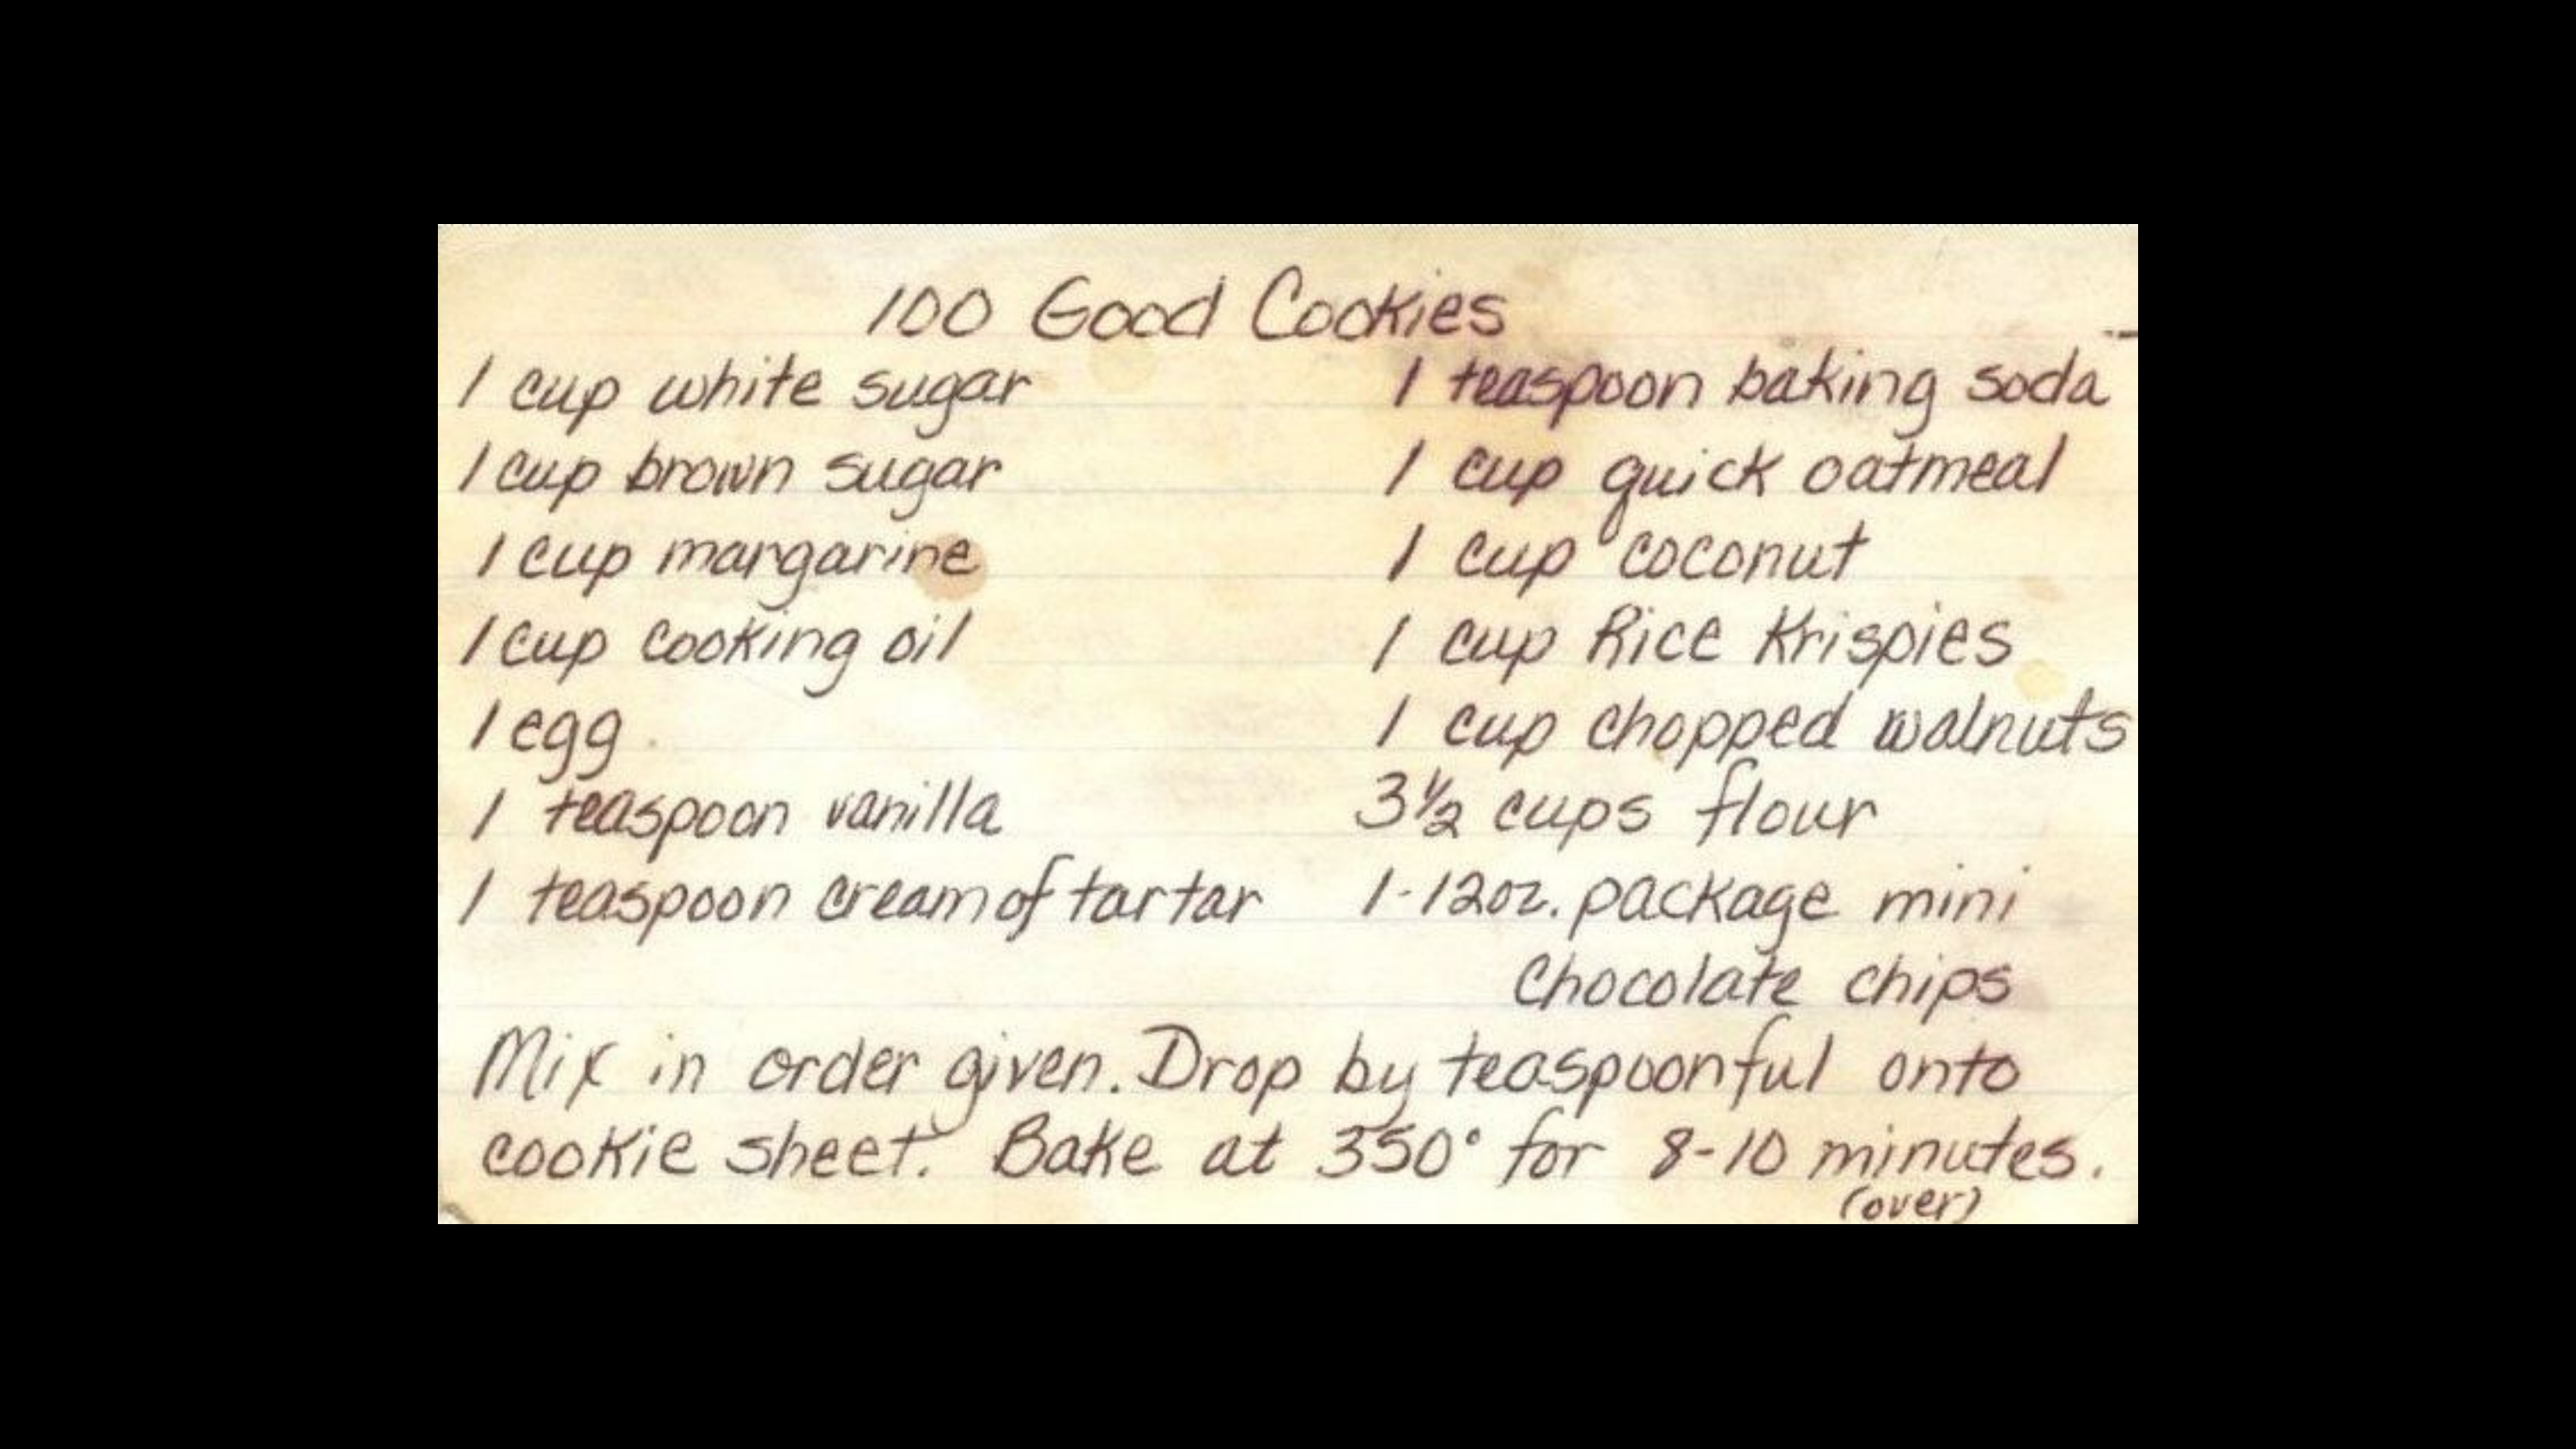 100 Good Cookies
1 cup white sugar
1 cup brown sugar
1 cup margarine
1 cup cooking oil
1 egg
1 teaspoon vanilla
1 teaspoon cream of tartar
1 teaspoon baking soda
1 cup quick oatmeal
1 cup coconut
1 cup Rice Krispies
1 cup chopped walnuts
3½ cups flour
1-12oz. package mini
Chocolate chips
Mix in order given. Drop by teaspoonful onto
cookie sheet. Bake at 350° for 8-10 minutes.
(over)